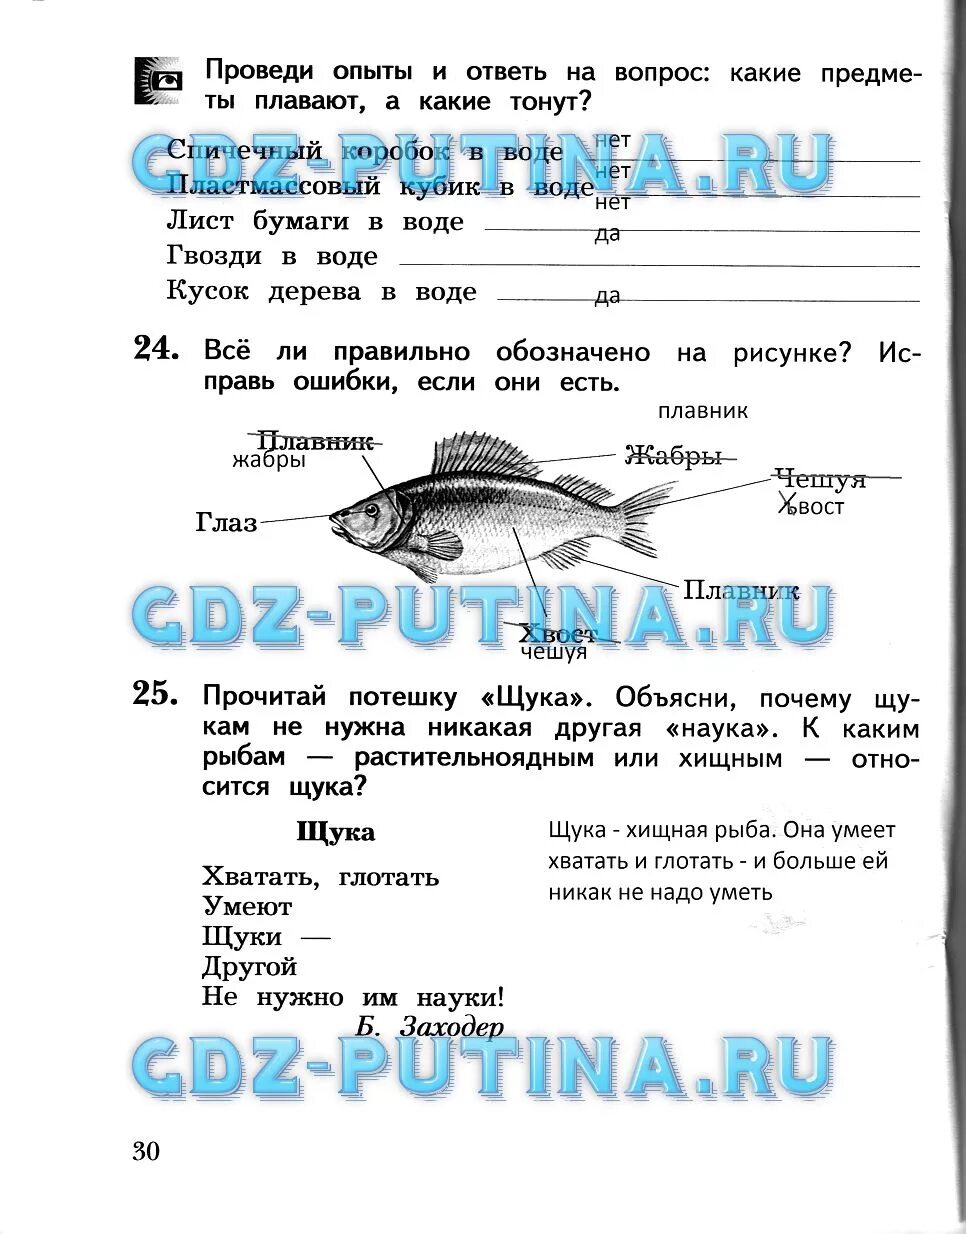 Проведи опыты и ответь на вопрос: какие предме-
ты плавают, а какие тонут?
Спичечный коробок в воде нет
Пластмассовый кубик в воде нет
Лист бумаги в воде нет
Гвозди в воде да
Кусок дерева в воде да
GDZ-PUTINA.RU
24. Всё ли правильно обозначено на рисунке? Ис-
правь ошибки, если они есть.
плавник
Плавник
жабры
Жабры
Чешуя
Хвост
Глаз
Плавник
GDZ-PUTINA.RU
Хвост
чешуя
25. Прочитай потешку «Щука». Объясни, почему щу-
кам не нужна никакая другая «наука». К каким
рыбам — растительноядным или хищным — отно-
сится щука?
Щука
Хватать, глотать
Умеют
Щуки —
Другой
Не нужно им науки!
Б. Заходер
Щука - хищная рыба. Она умеет
хватать и глотать - и больше ей
никак не надо уметь
GDZ-PUTINA.RU
30